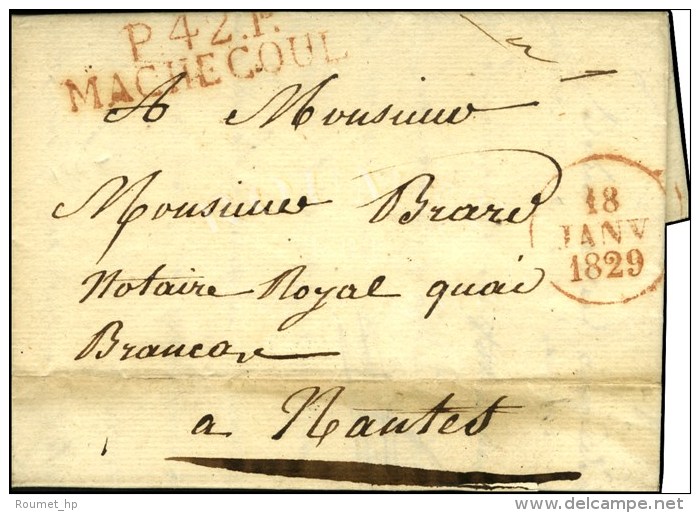 P.42.P.
MACHECOUL
A Monsieur
Monsieur Brard
18
JANV
1829
Notaire Royal quai
Brancas
a Nantes
Roumet_hp
delcampe.net